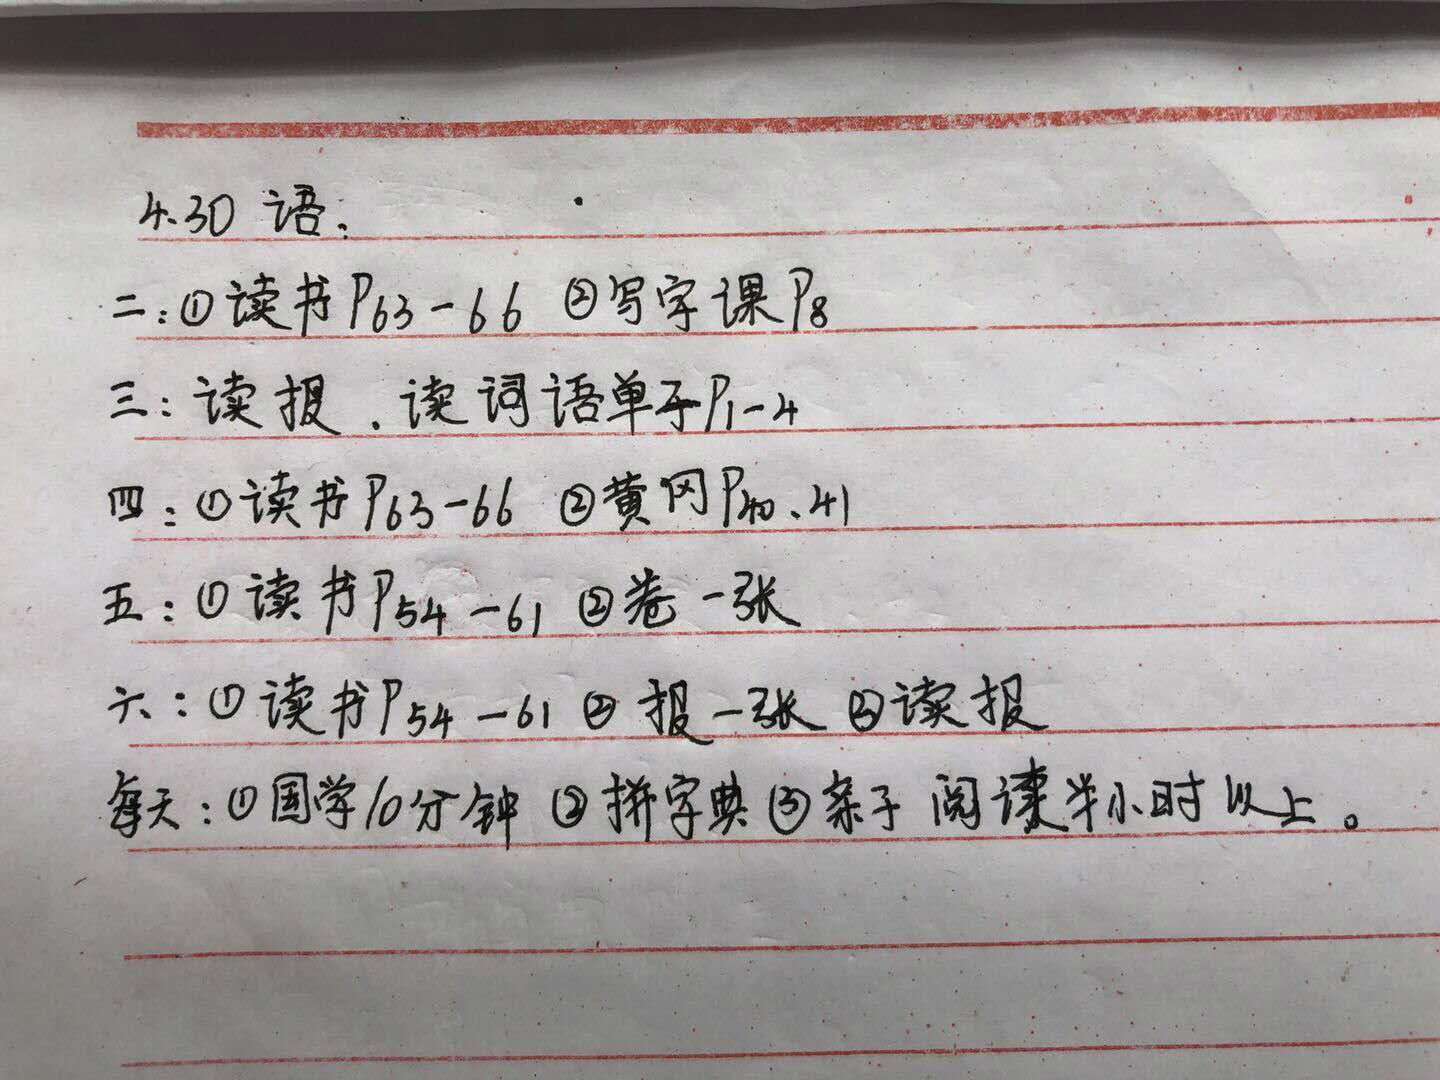 4.30 语：
二：①读书P63-66 ②写字课P8
三：读报、读词语单子P1-4
四：①读书P63-66 ②黄冈P40、41
五：①读书P54-61 ②卷一张
六：①读书P54-61 ②报一张 ③读报
每天：①国学10分钟 ②拼字典 ③亲子阅读半小时以上。